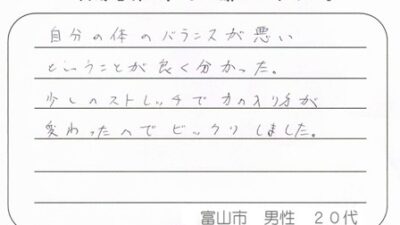 自分の体のバランスが悪い
ということが良く分かった。
少しのストレッチで力の入り方が
変わったのでビックリしました。
富山市 男性 20代